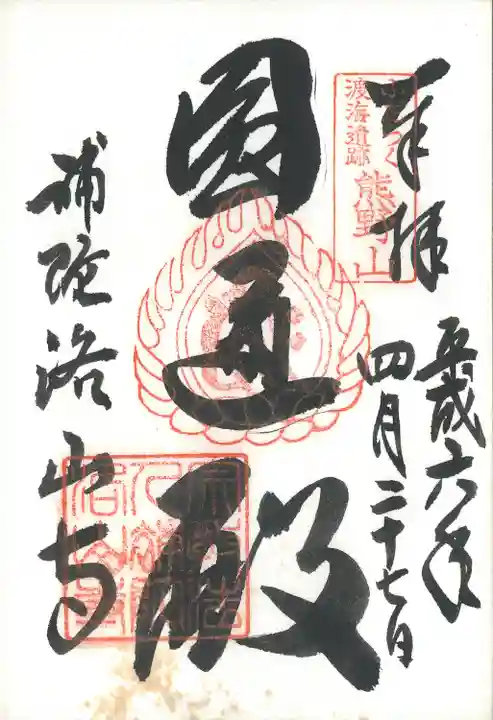 奉拝
渡海遺跡
熊野山
平成六年
四月二十七日
圓通殿
補陀洛山寺